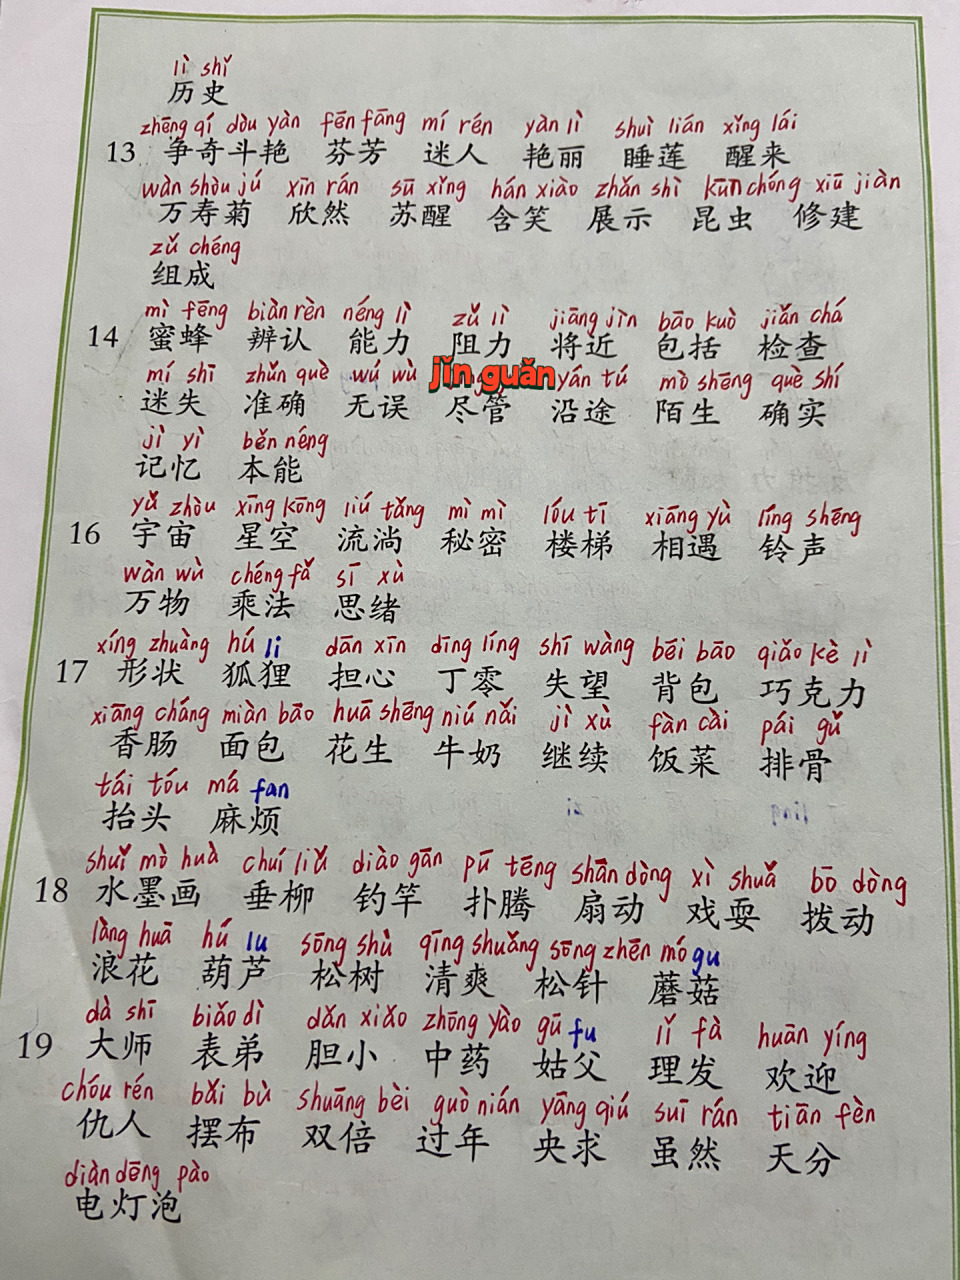 lì shǐ
历史
zhēng qí dòu yàn fēn fāng mí rén yàn lì shuì lián xǐng lái
13 争奇斗艳 芬芳 迷人 艳丽 睡莲 醒来
wàn shòu jú xīn rán sū xǐng hán xiào zhǎn shì kūn chóng xiū jiàn
万寿菊 欣然 苏醒 含笑 展示 昆虫 修建
zǔ chéng
组成
mì fēng biàn rèn néng lì zǔ lì jiāng jìn bāo kuò jiǎn chá
14 蜜蜂 辨认 能力 阻力 将近 包括 检查
mí shī zhǔn què wú wù jǐn guǎn yán tú mò shēng què shí
迷失 准确 无误 尽管 沿途 陌生 确实
jì yì běn néng
记忆 本能
yǔ zhòu xīng kōng liú tǎng mì mì lóu tī xiāng yù líng shēng
16 宇宙 星空 流淌 秘密 楼梯 相遇 铃声
wàn wù chéng fǎ sī xù
万物 乘法 思绪
xíng zhuàng hú li dān xīn dīng líng shī wàng bēi bāo qiǎo kè lì
17 形状 狐狸 担心 丁零 失望 背包 巧克力
xiāng cháng miàn bāo huā shēng niú nǎi jì xù fàn cài pái gǔ
香肠 面包 花生 牛奶 继续 饭菜 排骨
tái tóu má fan
抬头 麻烦
shuǐ mò huà chuí liǔ diào gān pū téng shān dòng xì shuǎ bō dòng
18 水墨画 垂柳 钓竿 扑腾 扇动 戏耍 拨动
làng huā hú lu sōng shù qīng shuǎng sōng zhēn mó gu
浪花 葫芦 松树 清爽 松针 蘑菇
dà shī biǎo dì dǎn xiǎo zhōng yào gū fu lǐ fà huān yíng
19 大师 表弟 胆小 中药 姑父 理发 欢迎
chóu rén bǎi bù shuāng bèi guò nián yāng qiú suī rán tiān fèn
仇人 摆布 双倍 过年 央求 虽然 天分
diàn dēng pào
电灯泡